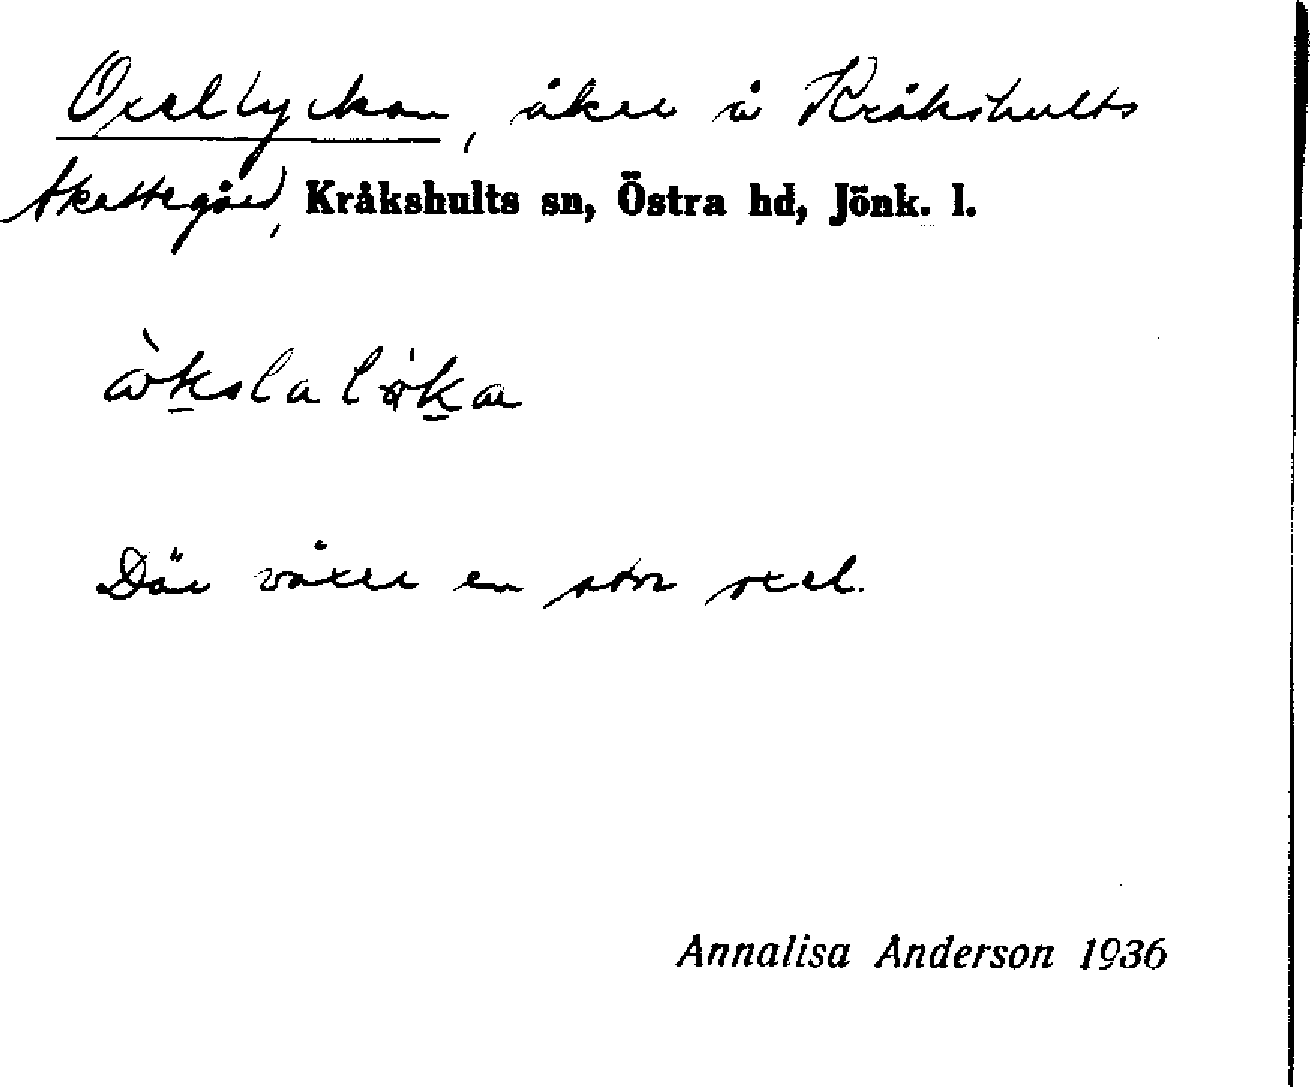 Oxellyckan, åker å Kråkshults
skattegård, Kråkshults sn, Östra hd, Jönk. l.
Där växer en stor oxel.
Annalisa Anderson 1936